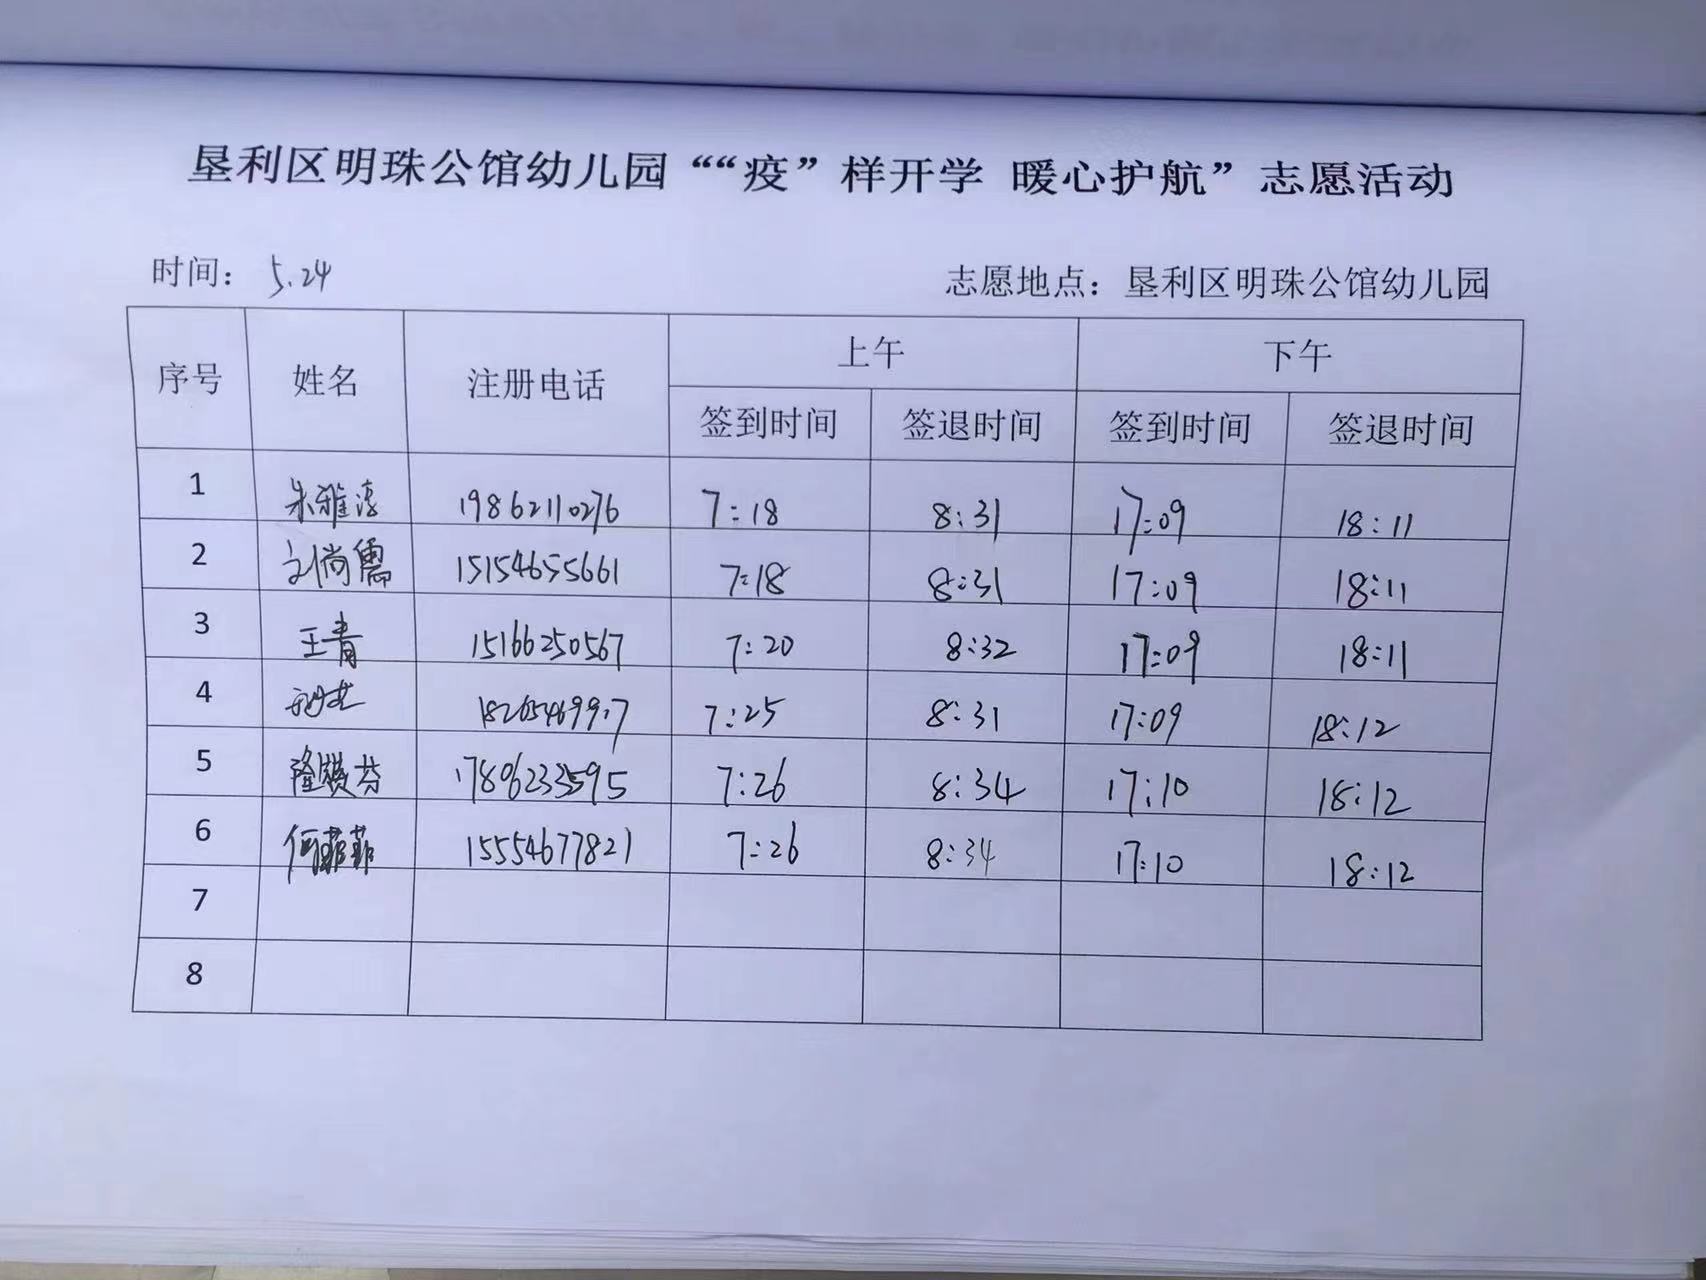 垦利区明珠公馆幼儿园““疫”样开学 暖心护航”志愿活动
时间: 5.24 志愿地点: 垦利区明珠公馆幼儿园
序号 姓名 注册电话 上午 下午
签到时间 签退时间 签到时间 签退时间
1 朱雅 19862110276 7:18 8:31 17:09 18:11
2 刘尚儒 15154655661 7:18 8:31 17:09 18:11
3 王青 15166250567 7:20 8:32 17:09 18:11
4 7:25 8:31 17:09 18:12
5 隆 芬 17806233595 7:26 8:34 17:10 18:12
6 何菲菲 15554677821 7:26 8:34 17:10 18:12
7
8